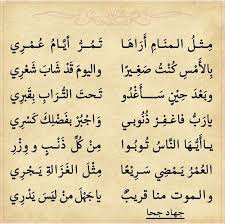 مِثْلُ المنَامِ أَرَاهَا تَمُرُّ أَيَّامُ عُمْرِي
بِالأَمْسِ كُنْتُ صَغِيرًا واليومَ قَدْ شَابَ شَعْرِي
وبَعْدَ حِيْنٍ سَأَغْدُو تَحتَ التُّرَابِ بِقَبْرِي
يا رَبُّ فاغْفِرْ ذُنُوبي وَاجْبُرْ بِفَضْلِكَ كَسْرِي
يا أيُّهَا النَّاسُ تُوبُوا مِن كُلِّ ذَنْبٍ ووِزْرِ
العُمْرُ يَمْضِي سَرِيْعًا مِثْلَ الغَزَالَةِ يَجْرِي
والموت منا قريبٌ ياجَهْلَ مَنْ لَيْسَ يَدْرِي
جهاد جحا